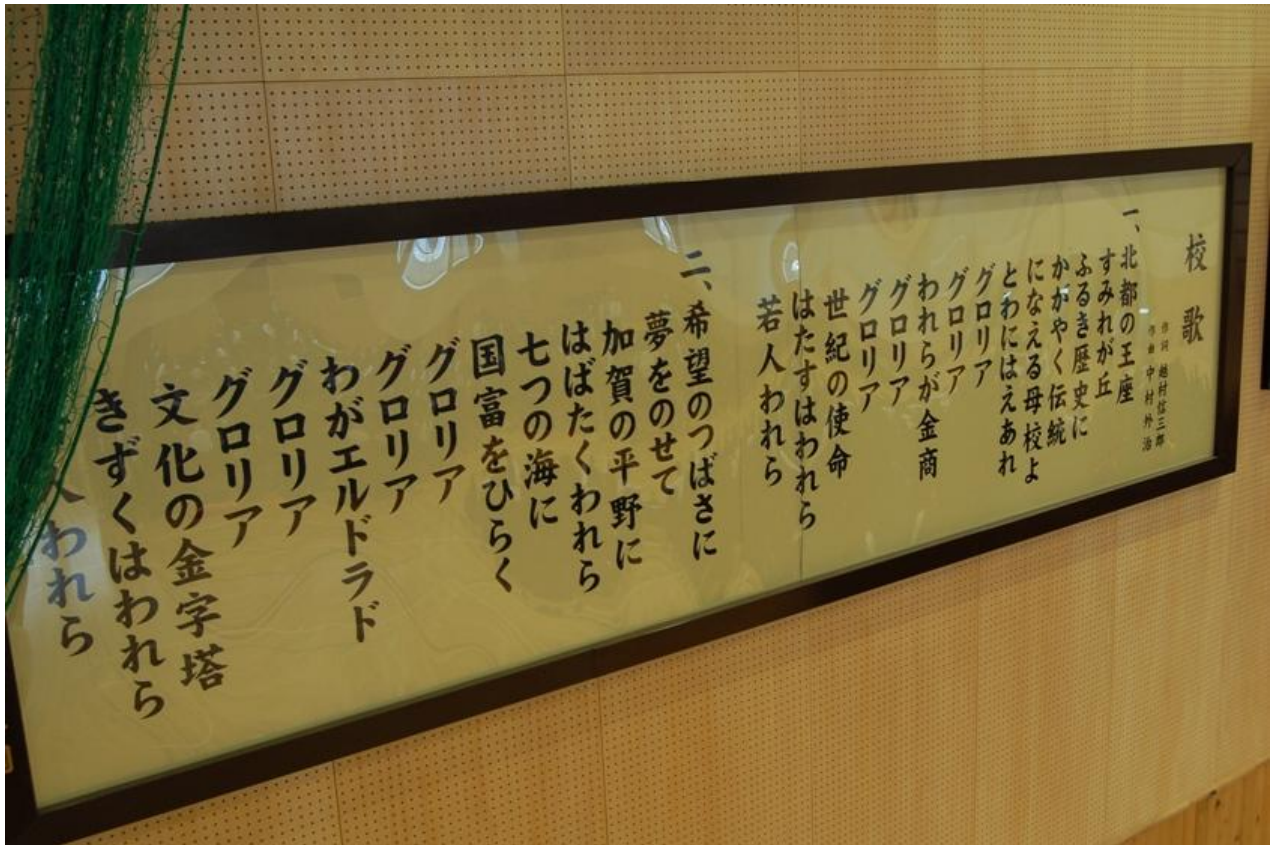 校歌
作詞 越村信三郎
作曲 中村外治
一、北都の王座
すみれが丘
ふるき歴史に
かがやく伝統
になえる母校よ
とわにはえあれ
グロリア
グロリア
われらが金商
グロリア
グロリア
世紀の使命
はたすはわれら
若人われら
二、希望のつばさに
夢をのせて
加賀の平野に
はばたくわれら
七つの海に
国富をひらく
グロリア
グロリア
わがエルドラド
グロリア
グロリア
文化の金字塔
きずくはわれら
人われら